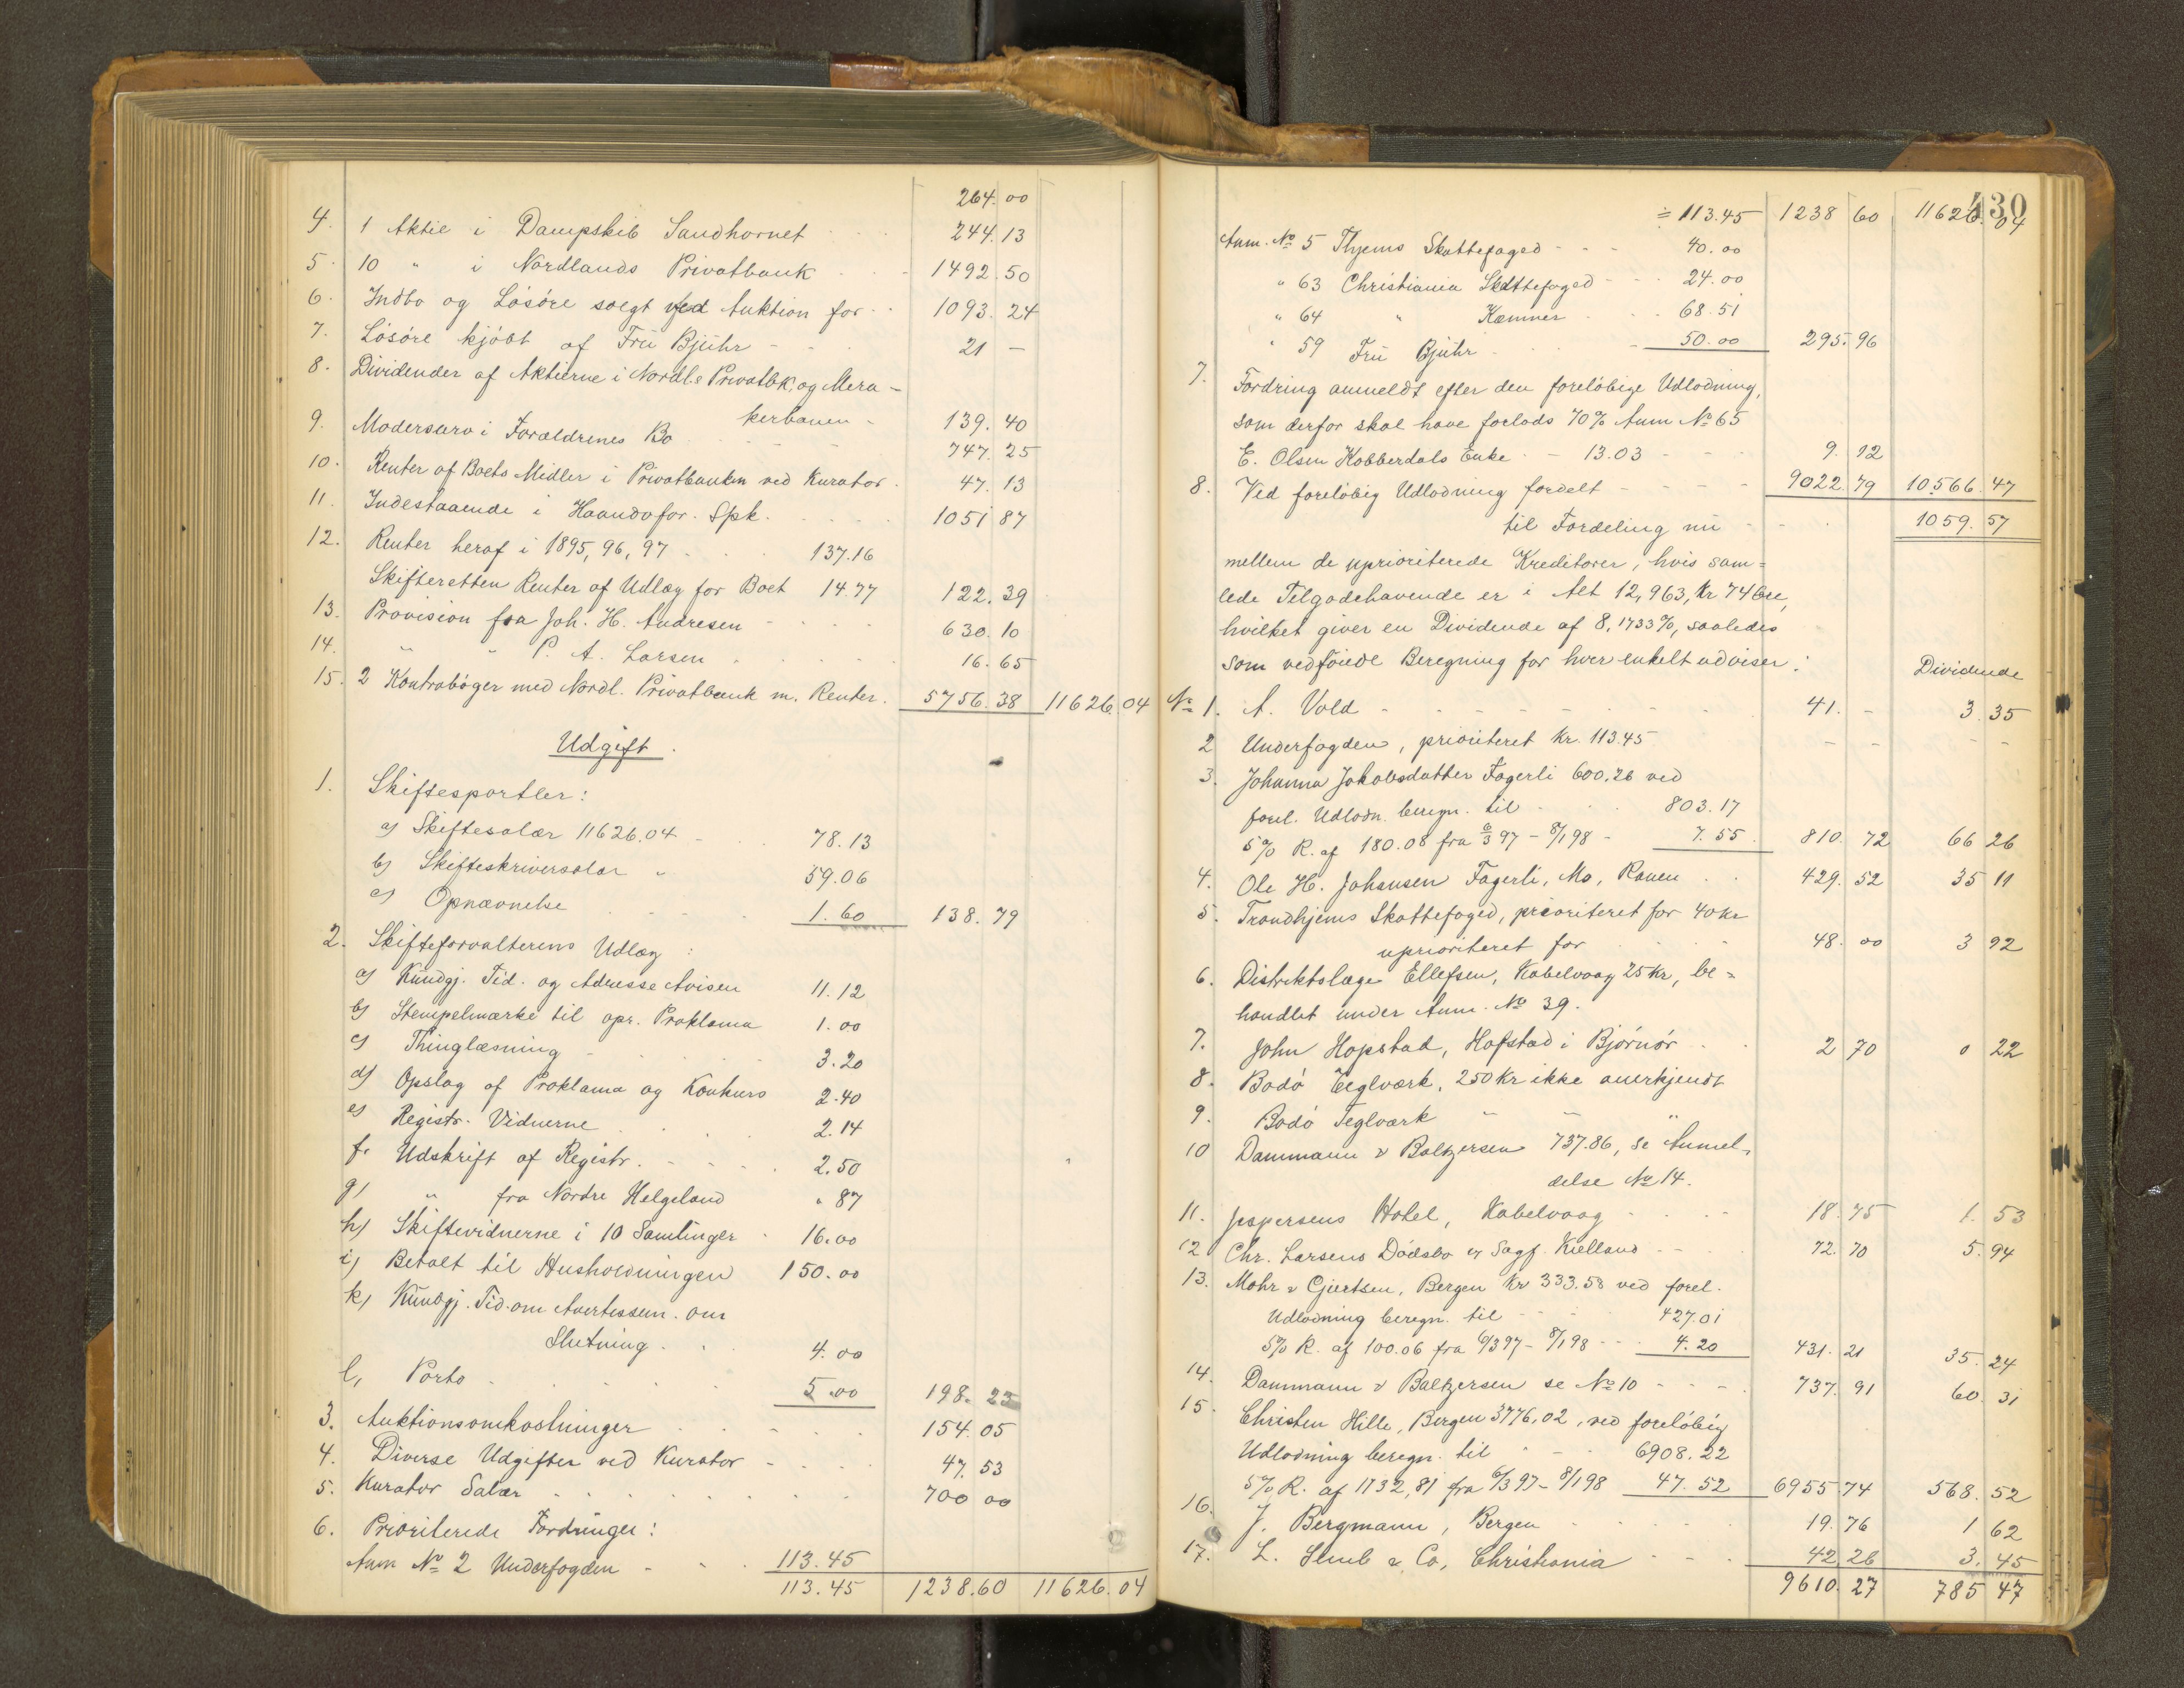 264.00
4. 1 Aktie i Dampskib Sandhornet 244.13
5. 10 " i Nordlands Privatbank 1492.50
6. Indbo og Løsøre solgt ved Auktion for 1093.24
7. Løsøre kjøbt af Fru Bjuhr 21 —
8. Dividender af Aktierne i Nordl.s Privatbk. og Mera-
kerbanen 139.40
9. Modersarv i Forældrenes Bo 747.25
10. Renter af Boets Midler i Privatbanken ved Kurator 47.13
11. Indestaaende i Haandv.for. Spk. 1051 87
12. Renter heraf i 1895, 96, 97 137.16
Skifteretten Renter af Udlæg for Boet 14.77 122.39
13. Provision fra Joh. H. Andresen 630.10
14. " " P. A. Larsen 16.65
15. 2 Kontrabøger med Nordl. Privatbank m. Renter. 5756.38 11626.04
Udgift.
1. Skiftesportler:
a) Skiftesalær 11626.04 78.13
b) Skifteskriversalær " 59.06
c) Opnævnelse 1.60 138.79
2. Skifteforvalterens Udlæg:
a) Kundgj. Tid. og Adresse Avisen 11.12
b) Stempelmærke til opr. Proklama 1.00
c) Thinglæsning 3.20
d) Opslag af Proklama og Konkurs 2.40
e) Registr. Vidnerne 2.14
f. Udskrift af Registr. 2.50
g) " fra Nordre Helgeland " 87
h) Skiftevidnerne i 10 Samlinger 16.00
i) Betalt til Husholdningen 150.00
k) Kundgj. Tid. om Avertissem. om
Slutning 4.00
l, Porto 5.00 198.23
3. Auktionsomkostninger 154.05
4. Diverse Udgifter ved Kurator 47.53
5. Kurator Salær 700 00
6. Prioriterede Fordringer:
Anm No 2 Underfogden 113.45
113.45 1238.60 11626.04
430
÷ 113.45 1238 60 11626.04
Anm. No 5 Thjems Skattefoged 40.00
" 63 Christiania Skattefoged 24.00
" 64 " Kæmner 68.51
" 59 Fru Bjuhr 50.00 295.96
7. Fordring anmeldt efter den foreløbige Udlodning,
som derfor skal have forlods 70% Anm No 65
E. Olsen Kobberdals Enke 13.03 9.12
8. Ved foreløbig Udlodning fordelt 9022.79 10566.47
til Fordeling nu 1059.57
mellem de uprioriterede Kreditorer, hvis sam=
lede Tilgodehavende er i Alt 12,963, Kr 74 Øre,
hvilket giver en Dividende af 8,1733%, saaledes
som vedføiede Beregning for hver enkelt udviser: Dividende
No 1. A. Vold 41. - 3 35
2 Underfogden, prioriteret Kr. 113.45 - - - -
3. Johanna Jakobsdatter Fagerli 600.26 ved
forel. Udlodn. beregn. til 803.17
5% R. af 180.08 fra 6/3 97 - 8/1 98 - 7.55 810.72 66 26
4. Ole H. Johansen Fagerli, Mo, Ranen 429.52 35 11
5. Trondhjems Skattefoged, prioriteret for 40 Kr
uprioriteret for 48.00 3 92
6. Distriktslæge Ellefsen, Kabelvaag 25 Kr, be=
handlet under Anm. No 39.
7. John Hopstad, Hofstad i Bjørnør 2 70 0 22
8. Bodø Teglværk, 250 Kr ikke anerkjendt
9. Bodø Teglværk " " "
10 Dammann & Baltzersen 737.86, se Anmel-
delse No 14.
11. Jespersens Hotel, Kabelvaag 18.75 1.53
12 Chr. Larsens Dødsbo v/ Sagf. Kielland 72.70 5.94
13. Mohr & Gjertsen, Bergen Kr 333.58 ved forel.
Udlodning beregn. til 427.01
5% R. af 100.06 fra 6/3 97 - 8/1 98 4.20 431.21 35.24
14. Dammann & Baltzersen se No 10 - 737.91 60.31
15. Christen Hille, Bergen 3776,02, ved foreløbig
Udlodning beregn. til 6908.22
5% R. af 1132,81 fra 6/3 97 - 8/1 98 47.52 6955.74 568.52
16. J. Bergmann, Bergen 19.76 1 62
17. L. & Co, Christiania 42.26 3.45
9610.27 785 47